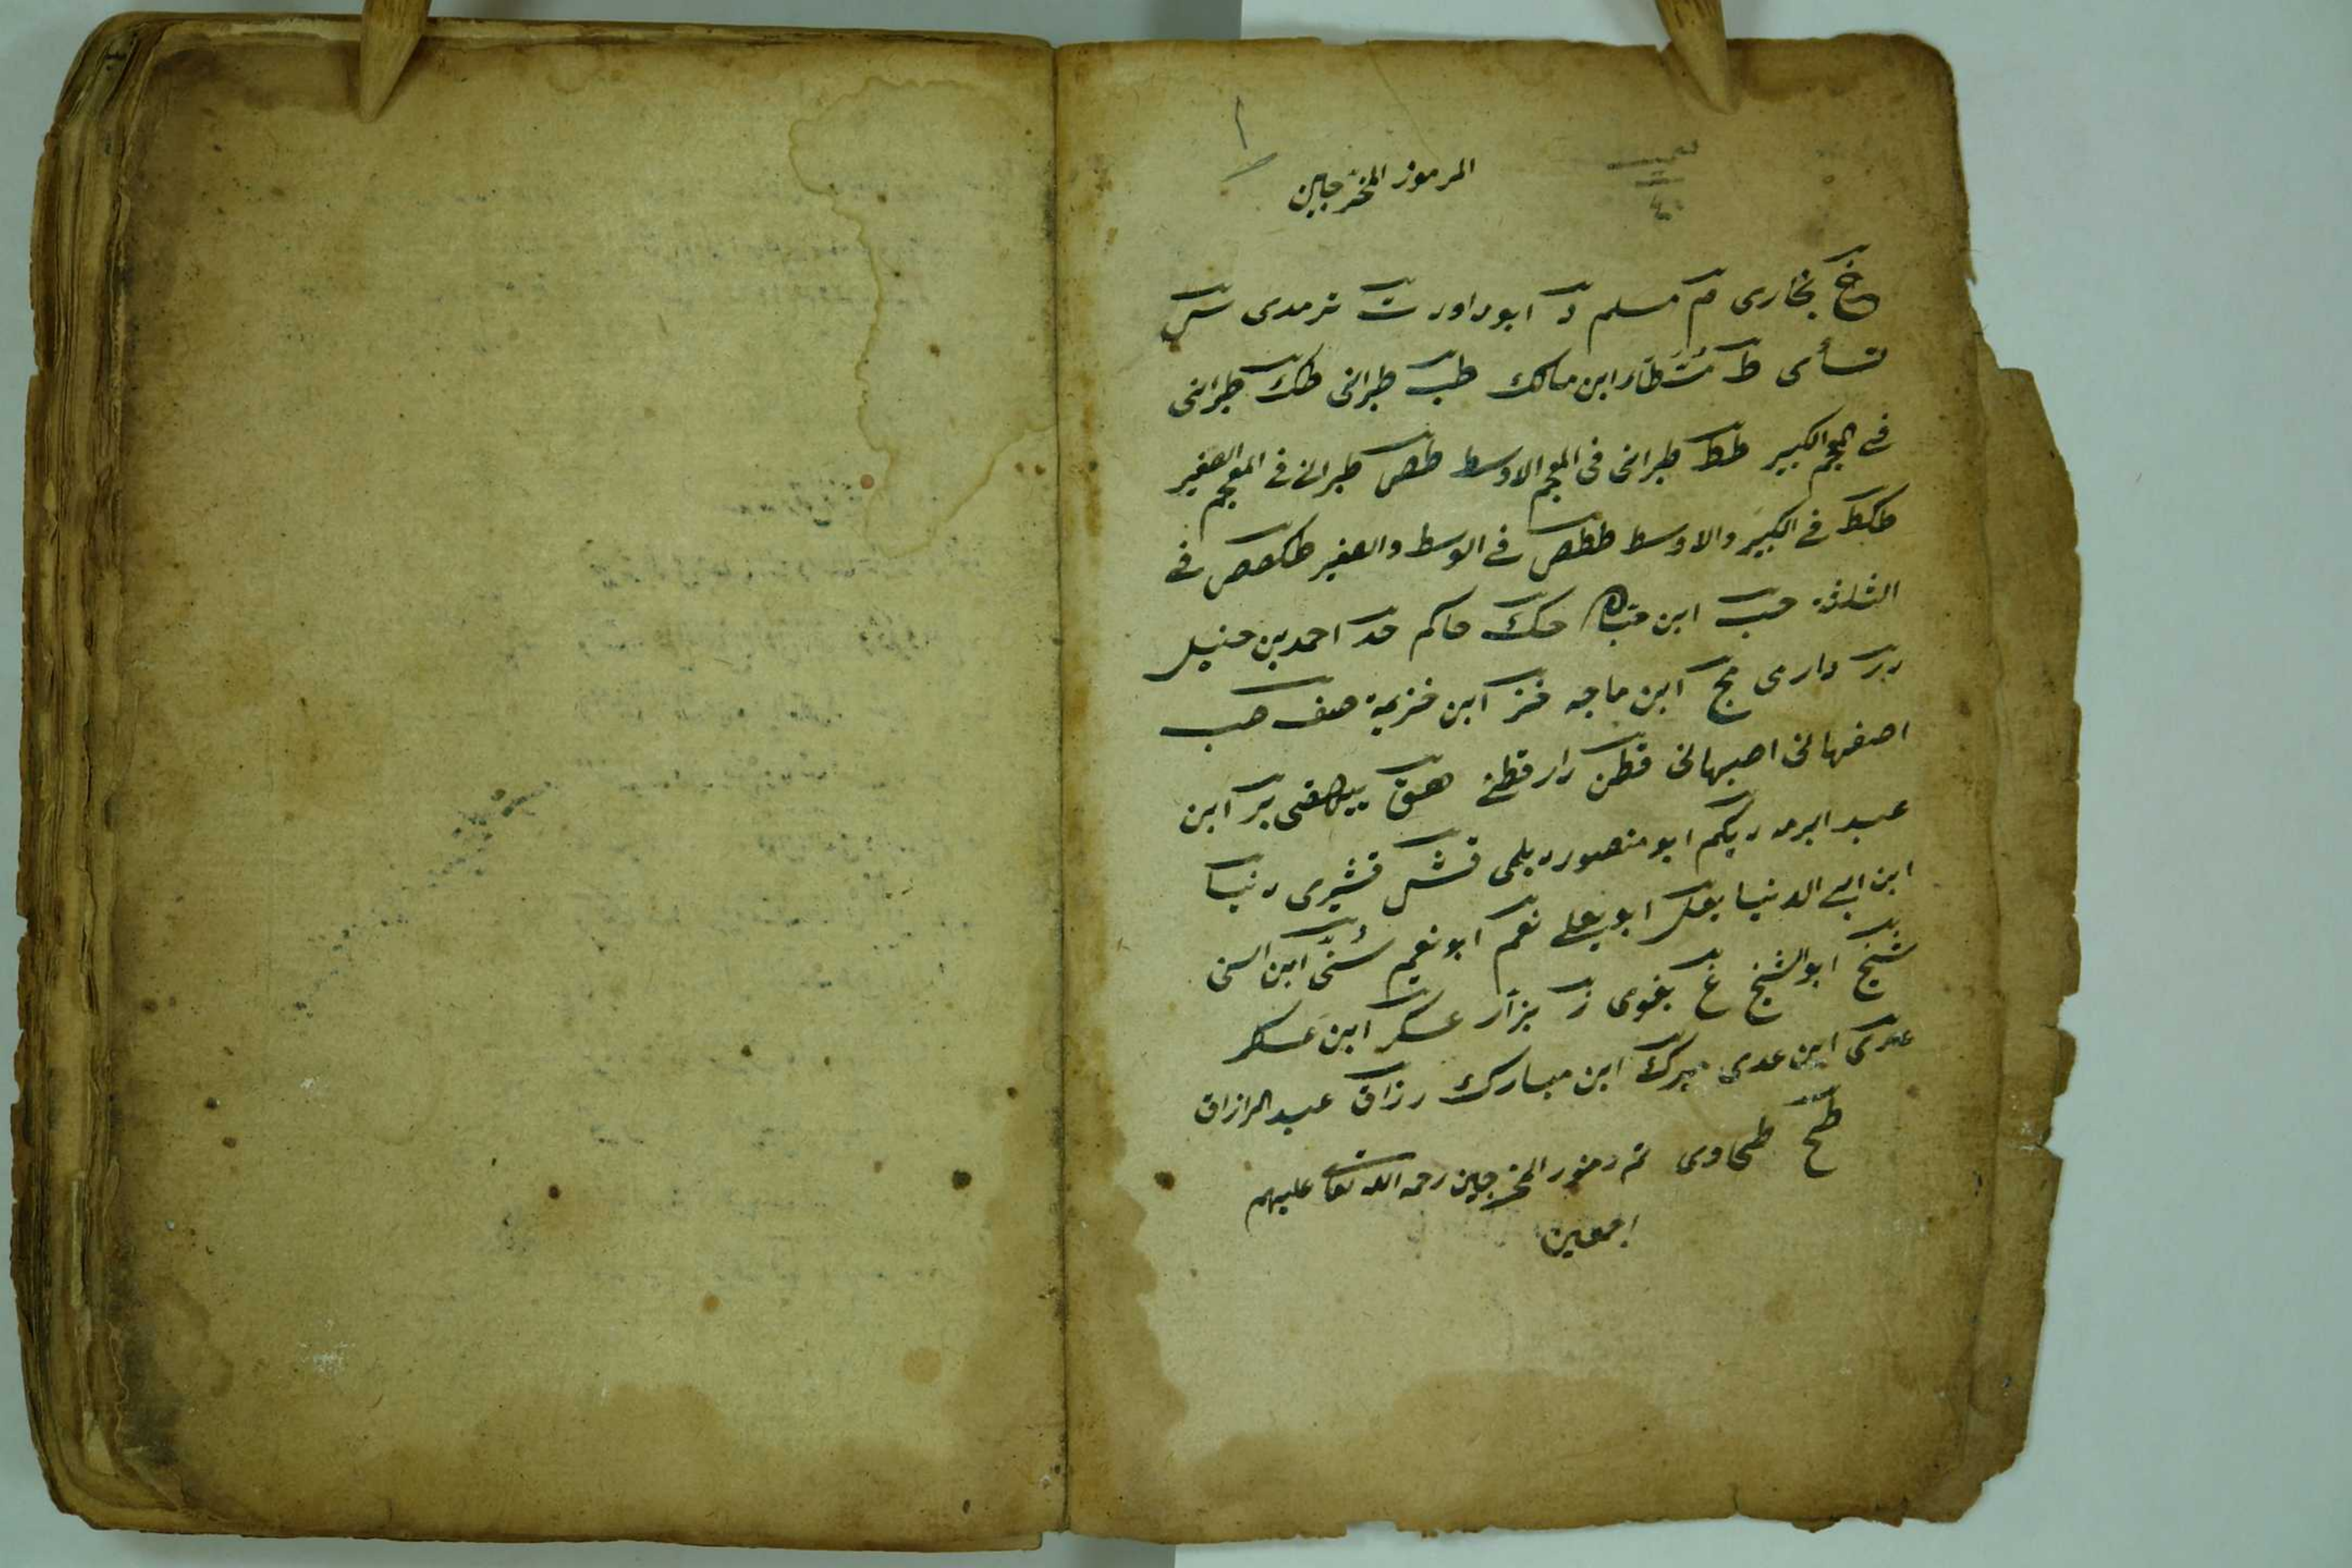 ١
المرموز المخرجين
خ بخارى م مسلم د ابوداود ت ترمدى س
نسأى ط مت طأر ابن مالك طب طبرانى طك طبرانى
فى المعجم الكبير طط طبرانى فى المعجم الاوسط طص طبرانى فى المعجم الصغير
طكط فى الكبير والاوسط ططص فى الوسط والصغير طكصص فى
الثلثة حب ابن حبان حك حاكم حد احمد بن حنبل
در دارمى مج ابن ماجه خز ابن خزيمة صف صب
اصفهانى اصبهانى قطن دارقطنى هق بيهقى بر ابن
عبد البر ديلم ابو منصور ديلمى قش قشيرى دنيا
ابن ابى الدنيا يعل ابو يعلى نعم ابو نعيم سُنّى ابن السنى
شيخ ابو الشيخ غ بغوى ز بزار عسكر ابن عسكر
عدى ابن عدى مبرك ابن مبارك رزاق عبد الرازاق
طح طحاوى تم رموز المخرجين رحمه الله تعالى عليهم
اجمعين